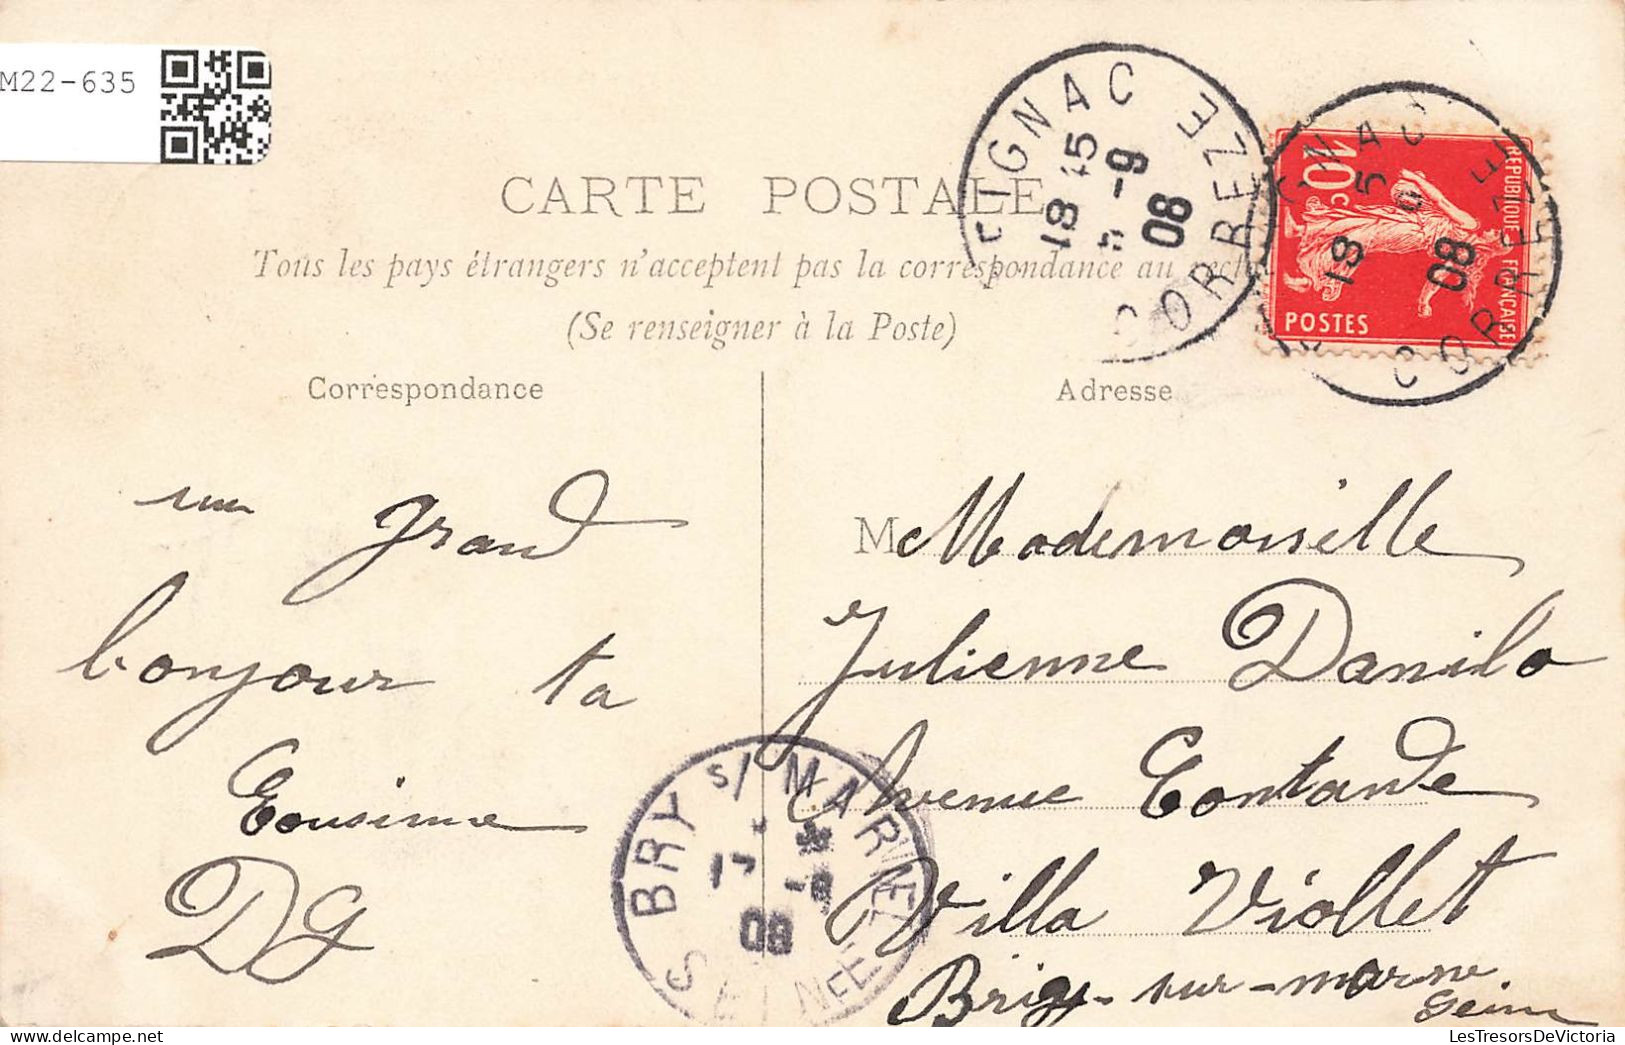 M22-635
CARTE POSTALE
Tous les pays étrangers n'acceptent pas la correspondance au
(Se renseigner à la Poste)
Correspondance
Adresse
un grand
bonjour ta
Cousine
DG
M Mademoiselle
Julienne Danilo
Avenue Contande
Villa Viollet
Briy-sur-marne
Seine
IGNAC CORREZE
18 15
08
REPUBLIQUE FRANÇAISE
10c
POSTES
IGNAC CORREZE
18
08
BRY s/ MARNE
SEINE
08
LesTresorsDeVictoria